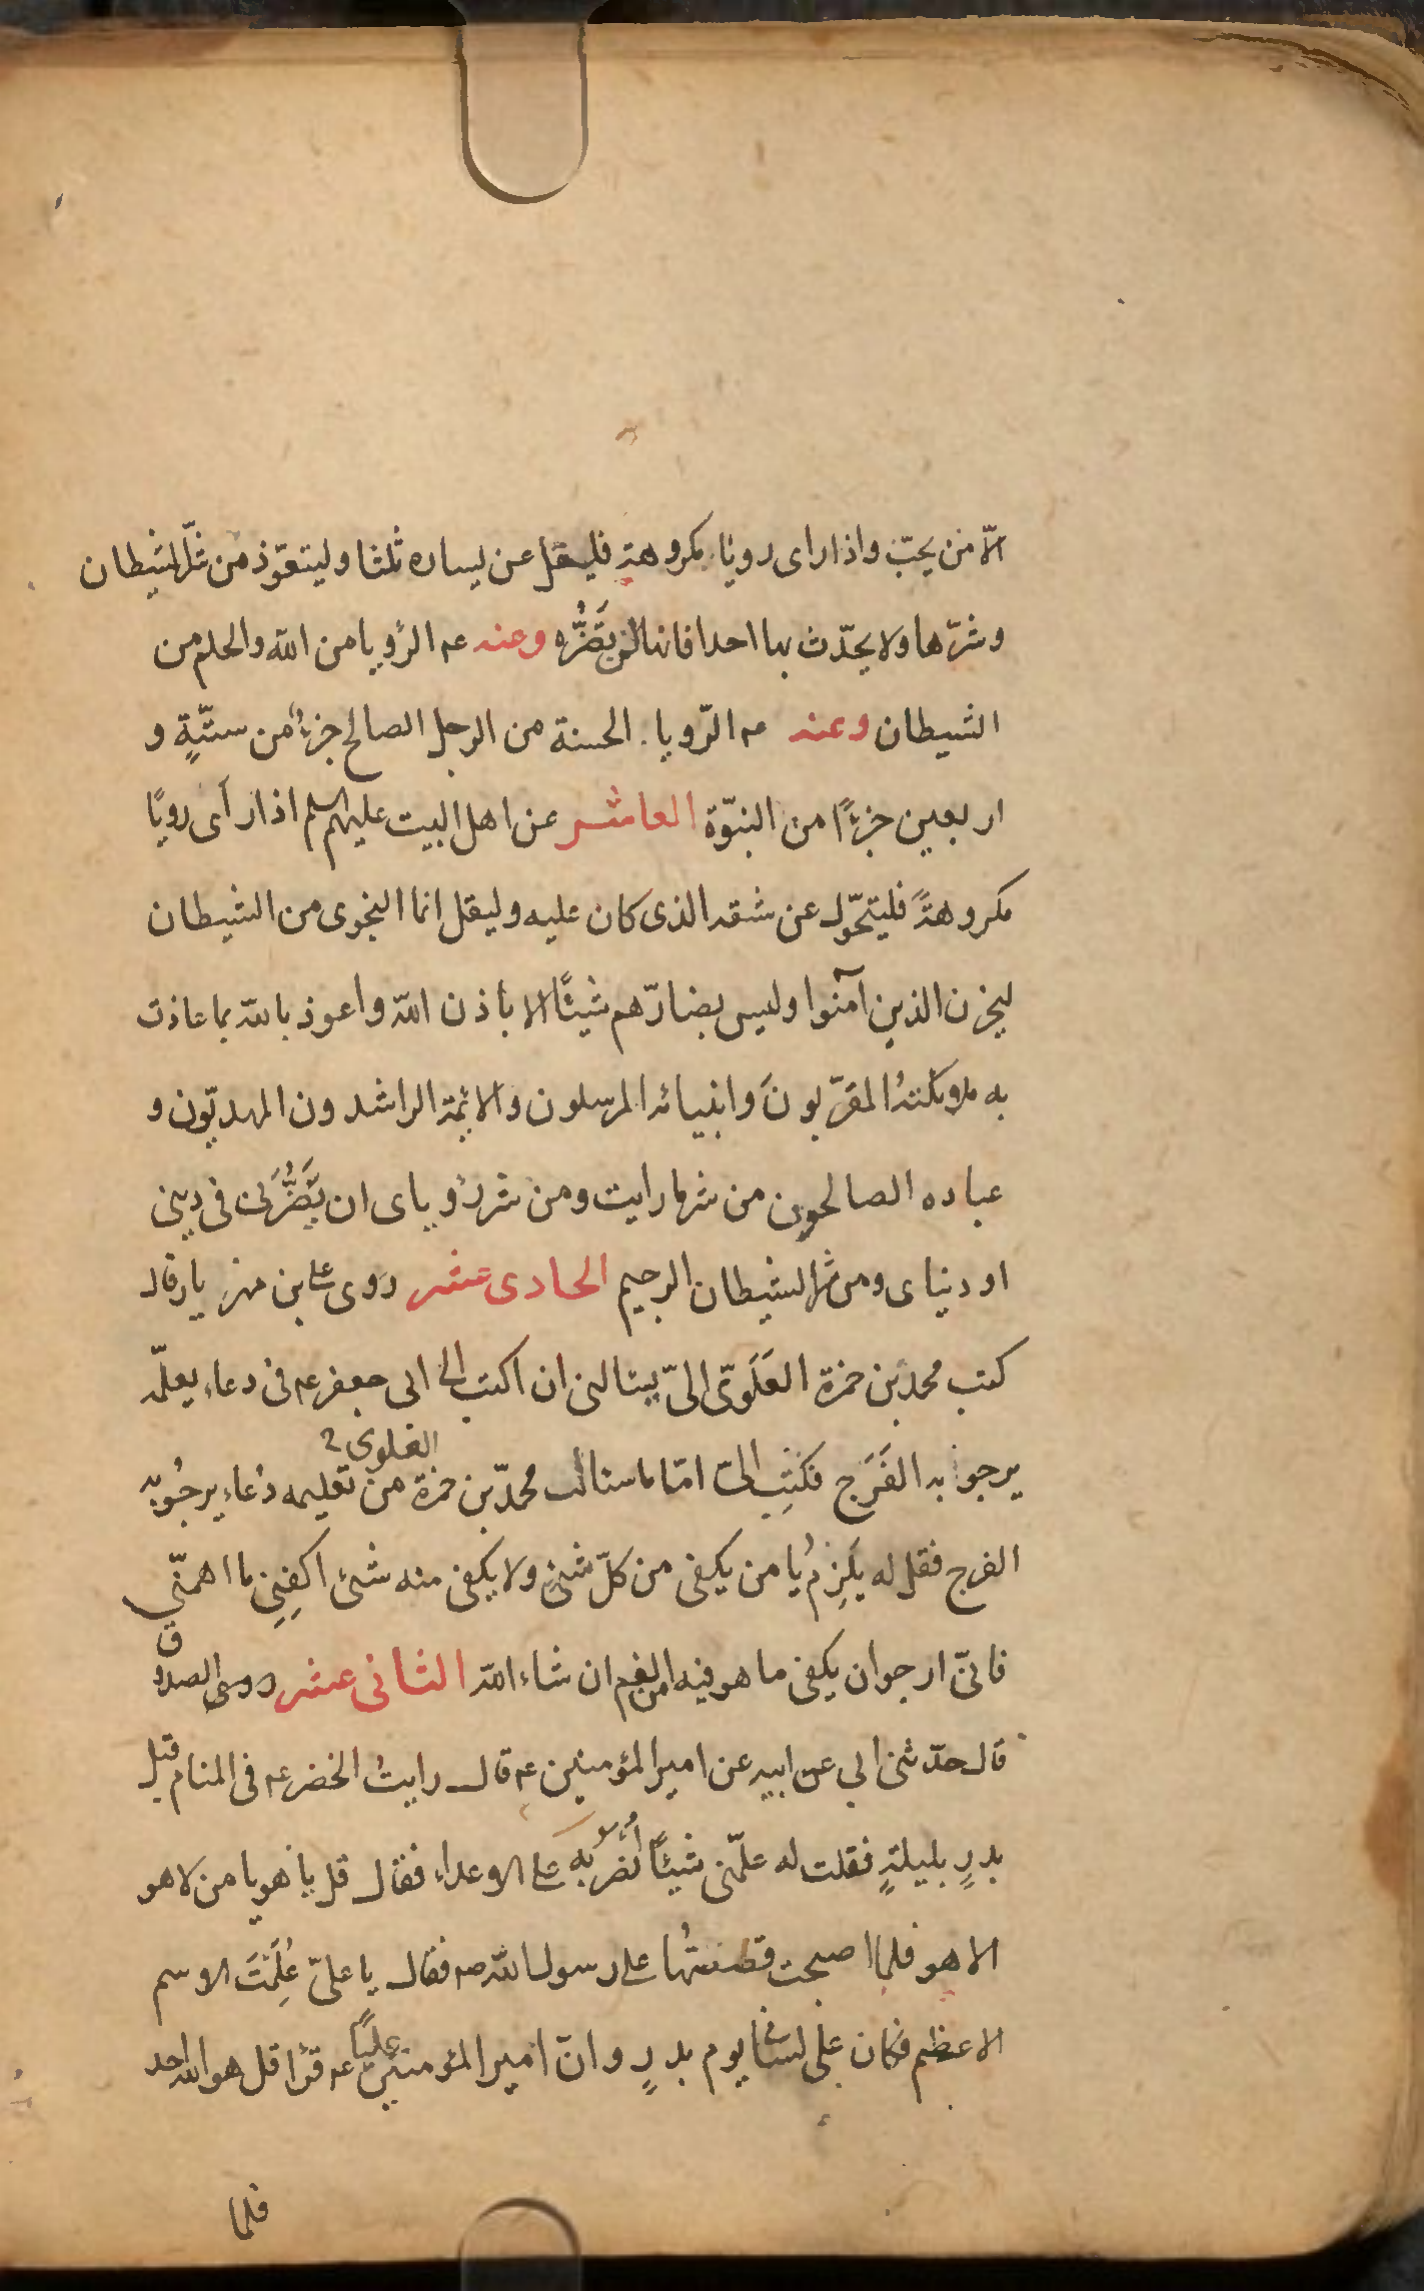 الّا من يحبّ واذا راى رويا مكروهة فليتفل عن يساره ثلثا وليتعوّذ من شرّ الشيطان
وشرّها ولا يحدّث بها احدا فانها لن تَضُرَّه وعنه عم الرؤيا من الله والحلم من
الشيطان وعنه عم الرّويا الحسنة من الرجل الصالح جزءٌ من ستّةٍ و
اربعين جزءًا من النبوّة العاشر عن اهل البيت عليهم السلم اذا رآى رويًا
مكروهةً فليتحّول عن شقه الذى كان عليه وليقل انما النجوى من الشيطان
ليحزن الذين آمنوا وليس بضارّهم شيئًا الا بأذن اللّه واعوذ باللّه بما عاذت
به ملائكتهُ المقرّبونَ وانبيائه المرسلون والائمّة الراشدون المهديّون و
عباده الصالحون من شر ما رايت ومن شر رؤياى ان تَضُرَّنى فى دينى
او دنياى ومن شر الشيطان الرجيم الحادى عشر روى على بن مهزيار قال
كتب محمد بن حمزة العَلَوىّ الىّ يسئالنى ان اكتب الى ابى جعفر عم فى دعاء يعلّمه
يرجوا به الفَرَج فكتِب الىّ امّا ما سئالت محمدّ بن حمزة من تعليمه دُعاء يرجُو به
العلوى
الفرج فقل له يَلزِمُ يا من يكفى من كلّ شئٍ ولا يكفى منه شئ اكفِنِى ما اهمّنى
فانّى ارجوا ان يكفى ما هو فيه من الغم ان شاء اللّه الثانى عشر روى الصدوق
قال حدّثنى ابي عن ابيه عن امير المؤمنين عم قال رايتُ الخضر عم فى المنام قبل
بدرٍ بليلةٍ فقلت له علّمنى شيئًا اُنصَرُ به على الاعداء فقال قل يا هو يا من لا هو
الا هو فلما اصبحت قصصتُها على رسول اللّه صم فقال يا علىّ عُلِّمْتَ الاسم
الاعظم فكان على لسانى يوم بدرٍ وانّ امير المؤمنين عليًّا عم قرأ قل هو الله احد
فلما